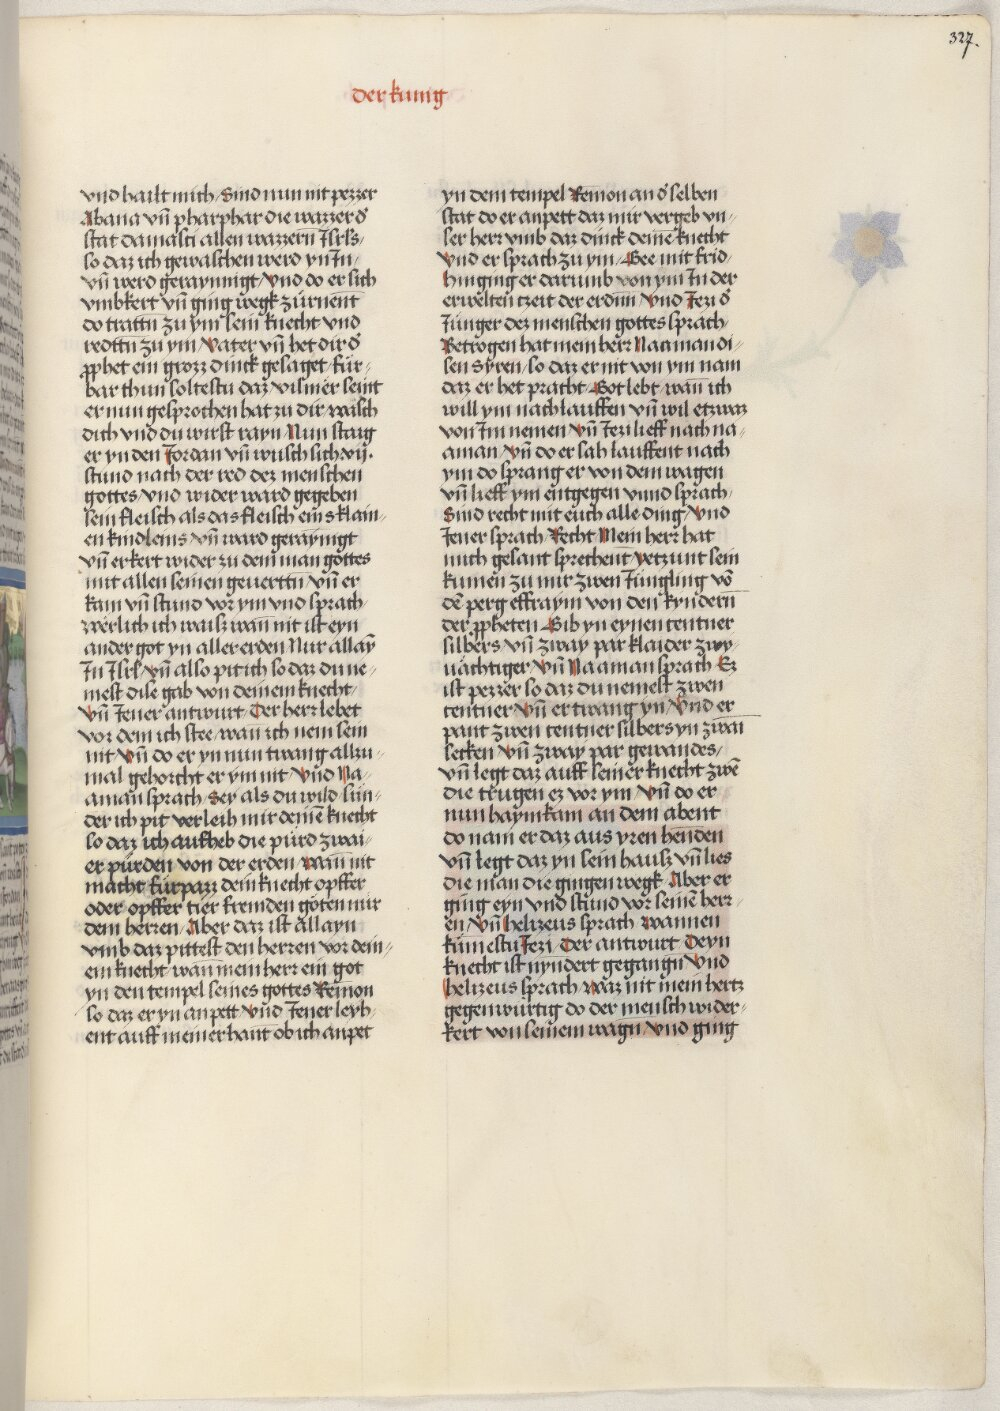 327.
der kunig
vnd hailt mich / Sind nun nit pezzer
Abana vn̄ pharphar die wazzer d᷎
stat damasci allen wazzern̄ Isrls /
so daz ich gewaschen werd yn In /
vn̄ werd geraynnigt / Vnd do er sich
vmbkert vn̄ ging wegk zürnent
do trattn̄ zu ym sein knecht vnd
redttn̄ zu ym / Vater vn̄ het dir d᷎
ꝓphet ein grozz dinck gesaget für /
bar thun soltestu daz vilmer seint
er nun gesprochen hat zu dir / wasch
dich vnd du wirst rayn Nun staig
er yn den Jordan vn̄ wusch sich vij.
stund nach der red dez menschen
gottes / vnd wider ward gegeben
sein fleisch als das fleisch eins klain /
en kindleins vn̄ ward geraynigt
vn̄ er kert wider zu dem̄ man gottes
mit allen seinen geuerttn̄ / vn̄ er
kam vn̄ stund vor ym vnd sprach /
werlich ich waisz wan̄ nit ist eyn
ander got yn aller erden Nur allay̅
In Isrl / vn̄ also pit ich so daz du ne /
mest dise gab von deinem knecht /
Vn̄ Jener antwurt / Der herr lebet
vor dem ich stee / wan ich nem sein
nit Vn̄ do er yn nun twang allzu /
mal gehorcht er ym nit / Vnd Na /
aman sprach / Ser als du wild sun /
der ich pit verleih mir deinem̄ knecht
so daz ich aufheb die pürd zwai /
er pürden von der erden wan̄ nit
macht fürpazz dein knecht opffer
oder opffer tier fremden göten nur
dem herren / Aber daz ist allayn
vmb daz pittest den herren vor dein /
em knecht wan̄ mein herr ein got
yn den tempel seines gottes Remon
so daz er yn anpett vnd Jener leyh /
ent auff meiner hant ob ich anpet
yn dem tempel Remon an d᷎ selben
stat do er anpett daz mir vergeb vn /
ser herr vmb daz dinck deinē knecht
Vnd er sprach zu ym / Gee mit frid
hin ging er darumb von ym In der
erwelten tzeit der erdin̄ / Vnd Jezi d᷎
Jünger dez menschen gottes sprach /
Betrogen hat mein herr Naaman di /
sen Syren / so daz er nit von ym nam
daz er het pracht Got lebt / wan̄ ich
will ym nach lauffen vn̄ wil etzwaz
von Im nemen / vn̄ Jezi lieff nach na /
aman / Vn̄ do er sah lauffent nach
ym do sprang er von dem wagen
vn̄ lieff ym entgegen vnnd sprach /
Sind recht mit euch alle ding / Vnd
Jener sprach / Recht Mein herr hat
mich gesant sprechent / yetzunt sein
kumen zu mir zwen Jüngling vō
dē perg effraym von den kyndern̄
der ꝓpheten Gib yn eynen tentner
silbers vn̄ zway par klaider zwy /
uächtiger / Vn̄ Naaman sprach Ez
ist pezzer so daz du nemest zwen
tentner Vn̄ er twang yn / Vnd er
pant zwen tentner silbers yn zwai
secken vn̄ zway par gewandes /
vn̄ legt daz auff seiner knecht zwē
die trugen ez vor ym / Vn̄ do er
nun haym kam an dem abent
do nam er daz aus yren henden
vn̄ legt daz yn sein hausz vn̄ lies
die man die gingen wegk Aber er
ging eyn vnd stund vor seinē herr /
en / Vn̄ helizeus sprach wannen
kümestu Jezi / Der antwurt Deyn
knecht ist nyndert gegangn̄ / Vnd
helizeus sprach / waz nit mein hertz
gegenwürtig do der mensch wider /
kert von seinem wagn̄ / vnd ging